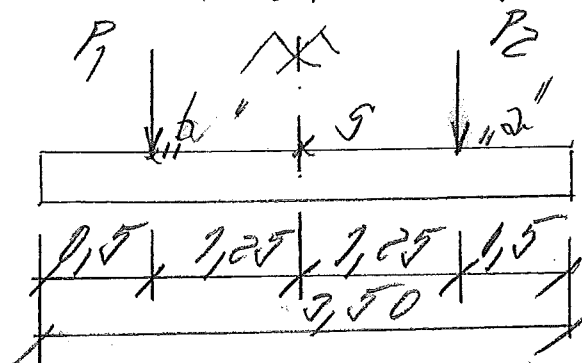 P1 P2
„b" S „a"
0,5 1,25 1,25 0,5
3,50